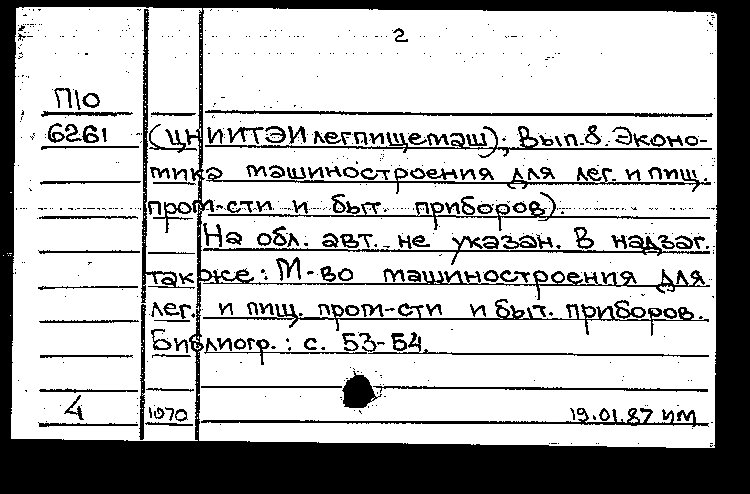 2
П10
6261 (ЦНИИТЭИлегпищемаш); Вып.8. Эконо-
мика машиностроения для лег. и пищ.
пром-сти и быт. приборов).
На обл. авт. не указан. В надзаг.
также: М-во машиностроения для
лег. и пищ. пром-сти и быт. приборов.
Библиогр.: с. 53-54.
4 1070 19.01.87 им